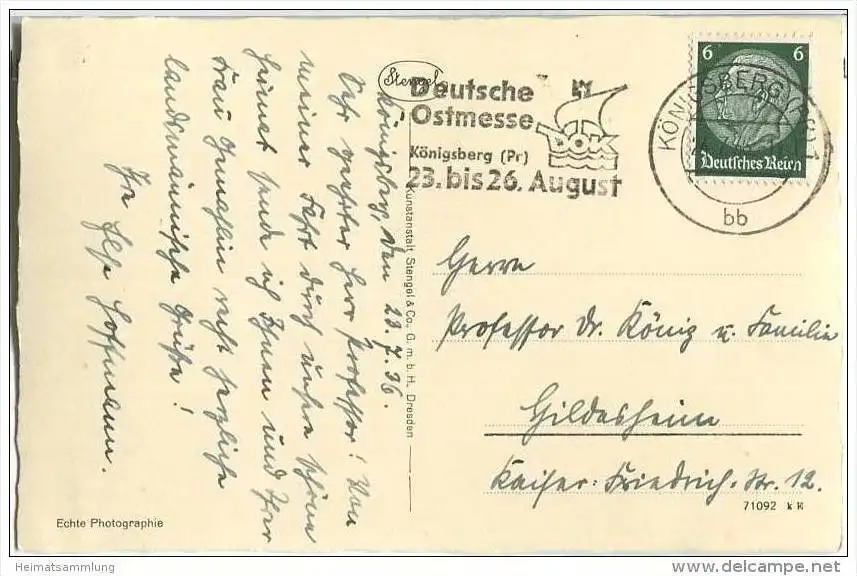 Stengel
Deutsche
Ostmesse
Königsberg (Pr)
23. bis 26. August
DOK
6 6
Deutsches Reich
KÖNIGSBERG (PR) 1
bb
Königsberg, den 23.7.36.
Sehr geehrter Herr Professor! Von
meiner Fahrt durch unsere schöne
Heimat sende ich Ihnen und Ihrer
Frau Gemahlin recht herzliche
landsmännische Grüße!
Ihr Hoffmann.
Herrn
Professor Dr. König u. Familie
Hildesheim
Kaiser-Friedrich-Str. 12.
Kunstanstalt Stengel & Co., G. m. b. H., Dresden
Echte Photographie
71092
Heimatsammlung
www.delcampe.net